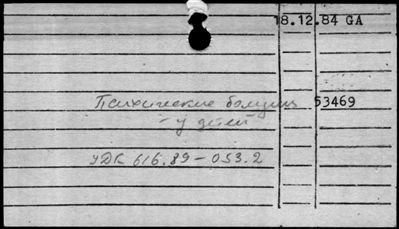 18.12.84 GA
Психические болезни 53469
- у детей
УДК 616.89-053.2